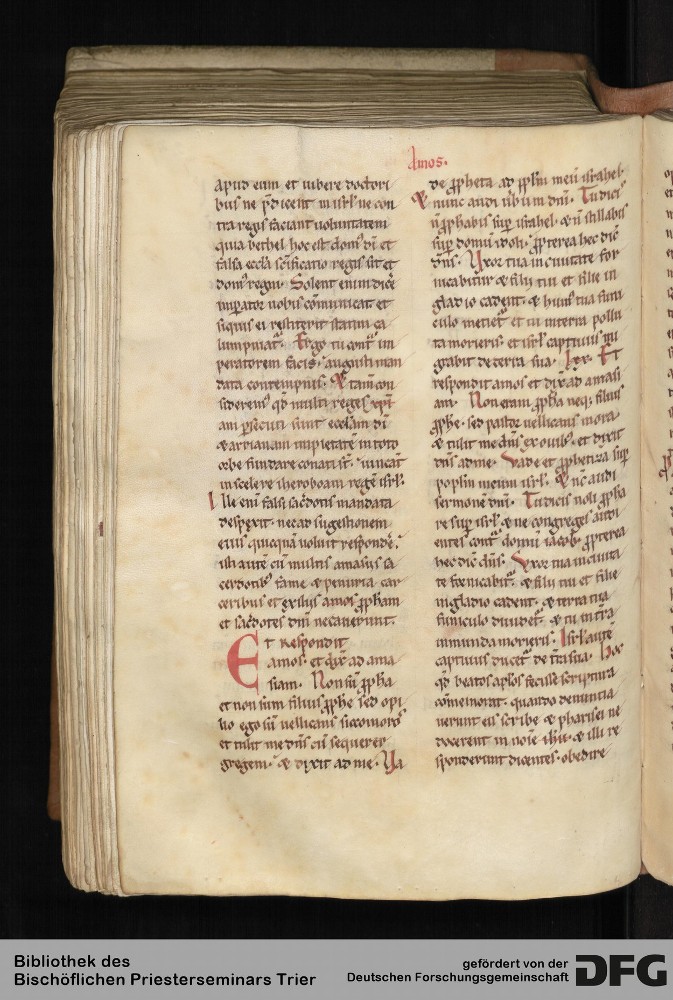 Amos.
apud eum et iubere doctori
bus ne p̄dicent in isrl̄ ne con
tra regis faciant uoluntatem
quia bethel hoc est dom᷒ dī et
falsa eccl̄a sc̄ificatio regis sit et
dom᷒ regni. Solent enim dicē
imperator uobis cōmunicat et
siquis ei restiterit statim ca
lumpniat᷑. Ergo tu cont᷑ im
peratorem facis. augusti man
data contempnis. Et tam̄ con
siderem᷒ qd̄ multi reges xp̄i
ani ꝑsecuti sunt eccl̄am dī
& arrianam impietatē in toto
orbe fundare conati st̄. uincāt
in scelere iheroboam regē isrl̄.
Ille enī falsi sac̄dotis mandata
despexit. nec ad sugestionem
eius quicquā uoluit respondē.
isti autē cū multis amasiis sa
cerdotib᷒ fame & penuria car
ceribus et exiliis amos ꝓph̄am
et sac̄dotes dn̄i necauerunt.
Et Respondit
amos. et dix̄ ad ama
siam. Non sū ꝓph̄a
et non sum filius ꝓphe sed opi
lio ego sū uellicans sicomoros
et tulit me dn̄s cū sequerer
gregem. & dixit ad me. Va
de ꝓpheta ad pplm̄ meū israhel.
& nunc audi ūbum dn̄i. Tu dicis
n̄ ꝓphabis suꝑ israhel. & n̄ stillabis
suꝑ domū idoli. ꝓpterea hec dic̄
dn̄s. Vxor tua in ciuitate for
nicabitur & filii tui et filie in
gladio cadent. & hum᷒ tua funi
culo metiet᷑ et tu in terra pollu
ta morieris et isrl̄ captiuus mi
grabit de terra sua. lxx. Et
respondit amos et dix̄ ad amasi
am. Non eram ꝓph̄a neq; filius
ꝓphe. sed pastor uellicans mora
& tulit me dn̄s ex ouib᷒. et dixit
dn̄s ad me. Vade et ꝓphetiza suꝑ
poplm̄ meum isrl̄. & n̄c audi
sermonē dn̄i. Tu dicis noli ꝓph̄a
re super isrl̄ & ne congreges audi
entes cont᷑ domū iacob. ꝓpterea
hec dic̄ dn̄s. Vxor tua in ciuita
te fornicabit᷑. & filii tui et filie
in gladio cadent. & terra tua
funiculo diuidet᷑. & tu in t̄ra
inmunda morieris. Isrl̄ autē
captiuus ducet᷑ de t̄ra sua. Hoc
qd̄ beatos apl̄os fecisse scriptura
cōmemorat. quando denuntia
uerunt eis scribe & pharisei ne
docerent in noīe ih̄u. & illi re
sponderunt dicentes. obedire
Bibliothek des
Bischöflichen Priesterseminars Trier
gefördert von der
Deutschen Forschungsgemeinschaft
DFG